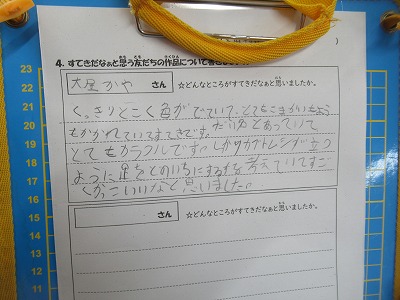 4. すてきだなぁと思う友だちの作品について書
大星かや さん ☆どんなところがすてきだなぁと思いましたか。
くっきりとこく色がでていて、とてもこまかいもよう
もかかれていてすてきです。
とてもカラフルです。しかもカブトムシが立つ
ように足をどのいちにするかを考えていてすご
くかっこいいなと思いました。
さん ☆どんなところがすてきだなぁと思いましたか。
23
22
21
20
19
18
17
16
15
14
13
12
11